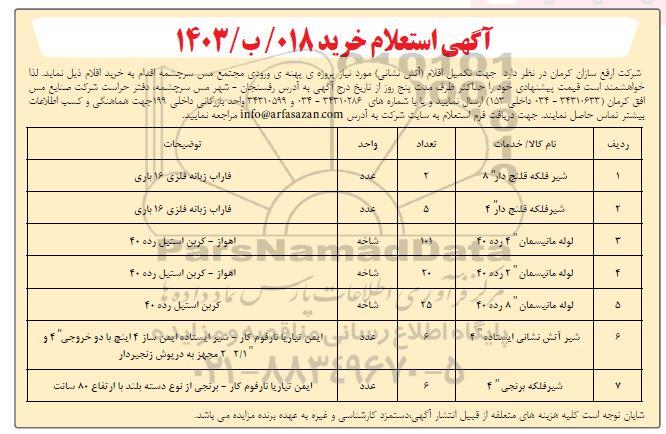 آگهی استعلام خرید ۰۱۸/ب/۱۴۰۳
شرکت ارفع سازان کرمان در نظر دارد جهت تکمیل اقلام (آتش نشانی) مورد نیاز پروژه ی پهنه ی ورودی مجتمع مس سرچشمه اقدام به خرید اقلام ذیل نماید. لذا
خواهشمند است قیمت پیشنهادی خود را حداکثر ظرف مدت پنج روز از تاریخ درج آگهی به آدرس رفسنجان - شهر مس سرچشمه، دفتر حراست شرکت صنایع مس
افق کرمان (۳۴۳۱۰۶۳۳ - ۰۳۴ داخلی ۱۵۳) ارسال نمایید و یا با شماره های ۳۴۳۱۰۲۸۶ - ۰۳۴ و ۳۴۳۱۰۵۹۹ واحد بازرگانی داخلی ۱۹۹ جهت هماهنگی و کسب اطلاعات
بیشتر تماس حاصل نمایند. جهت دریافت فرم استعلام به سایت شرکت به آدرس info@arfasazan.com مراجعه نمایید.
ردیف نام کالا/ خدمات تعداد واحد توضیحات
۱ شیر فلکه فلنج دار" ۸ ۲ عدد فاراب زبانه فلزی ۱۶ باری
۲ شیرفلکه فلنج دار" ۴ ۵ عدد فاراب زبانه فلزی ۱۶ باری
۳ لوله مانیسمان " ۴ رده ۴۰ ۱۰۱ شاخه اهواز - کربن استیل رده ۴۰
۴ لوله مانیسمان " ۲ رده ۴۰ ۲۰ شاخه اهواز - کربن استیل رده ۴۰
۵ لوله مانیسمان " ۸ رده ۴۰ ۲۵ شاخه کربن استیل رده ۴۰
۶ شیر آتش نشانی ایستاده " ۴ ۶ عدد ایمن تیاریا نارفوم کار - شیر ایستاده ایمن ساز ۴ اینچ با دو خروجی" ۴ و
"۲/۱ ۲ مجهز به درپوش زنجیردار
۷ شیرفلکه برنجی " ۴ ۶ عدد ایمن تیاریا نارفوم کار - برنجی از نوع دسته بلند با ارتفاع ۸۰ سانت
شایان توجه است کلیه هزینه های متعلقه از قبیل انتشار آگهی،دستمزد کارشناسی و غیره به عهده برنده مزایده می باشد.
ParsNamadData
مرکز فرآوری اطلاعات پارس نماد داده ها
پایگاه اطلاع رسانی مناقصه و مزایده
۰۲۱-۸۸۳۴۹۶۷۰-۵